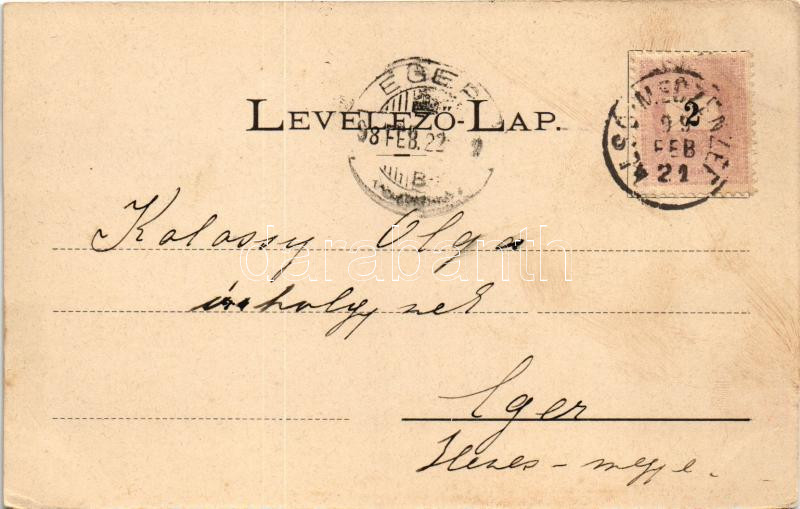 EGER
LEVELEZŐ-LAP.
98 FEB. 22
B
ALSÓ-MECZENZEF
2
99
FEB
21
Kolossy Olga
úrhölgynek
Eger
Heves-megye.
darabanth